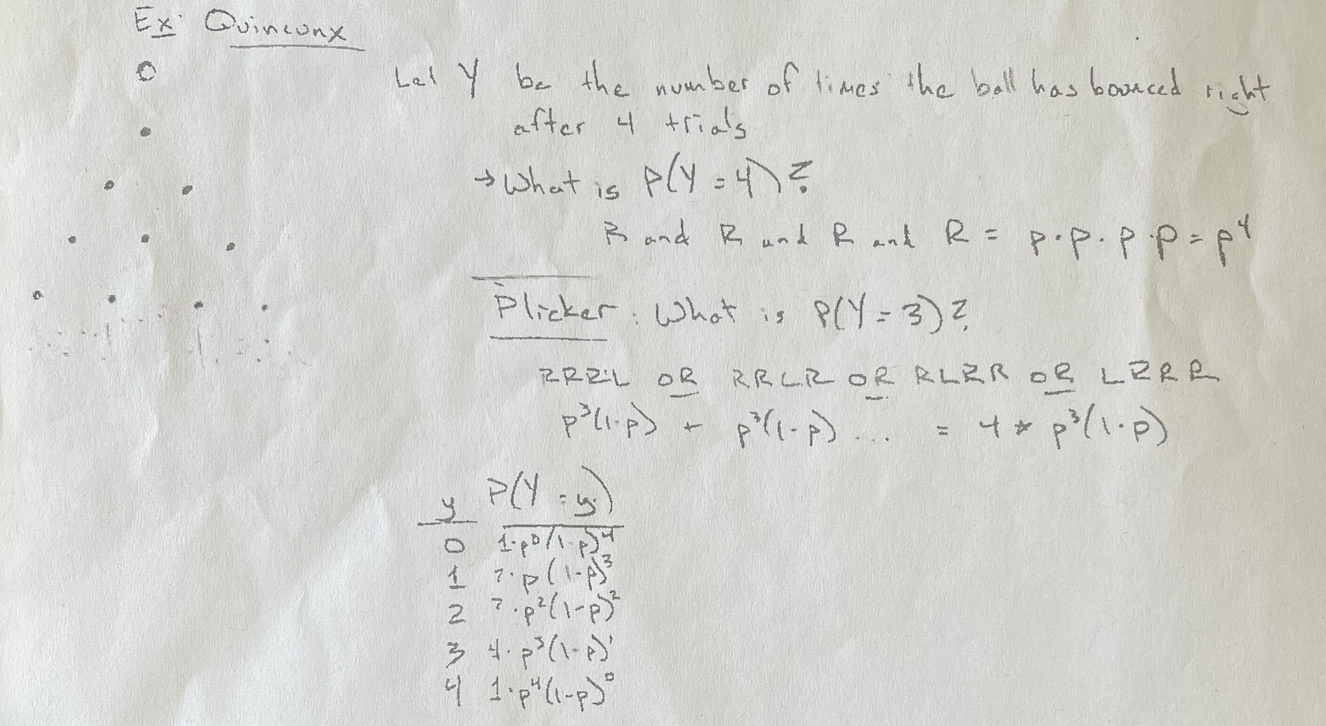 Ex: Quincunx
Let Y be the number of times the ball has bounced right
after 4 trials
→ What is P(Y = 4)?
R and R and R and R = p·p·p·p = p⁴
Plicker: What is P(Y = 3)?
RRRL OR RRLR OR RLRR OR LRRR
p³(1-p) + p³(1-p) ... = 4 * p³(1-p)
y P(Y = y)
0 1·p⁰(1-p)⁴
1 ?·p(1-p)³
2 ?·p²(1-p)²
3 4·p³(1-p)¹
4 1·p⁴(1-p)⁰